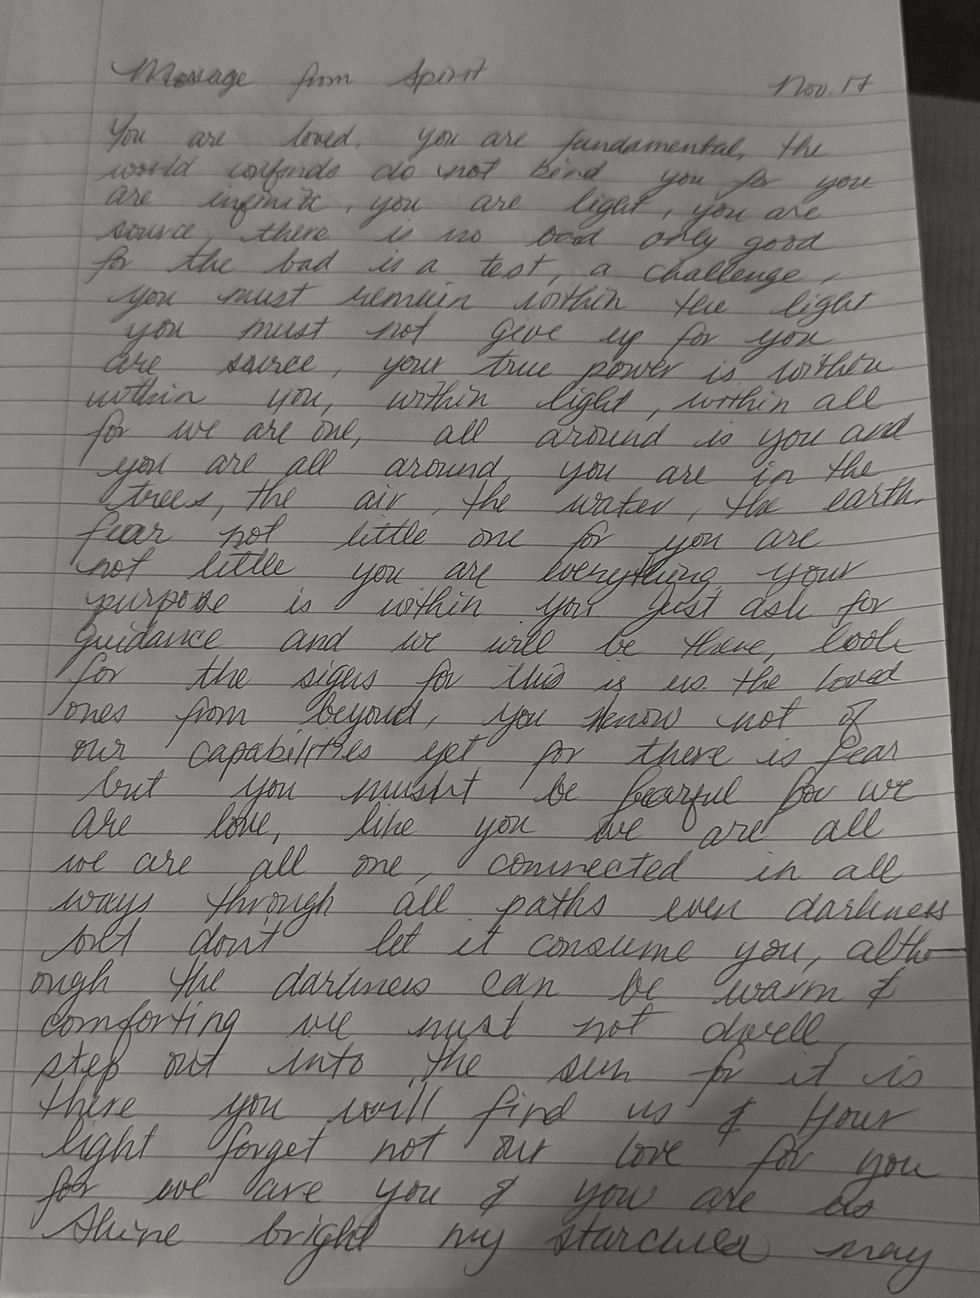 Message from Spirit Nov. 17
You are loved, you are fundamental, the
world confinds do not bind you for you
are infinite, you are light, you are
source, there is no bad only good
for the bad is a test, a challenge,
you must remain within the light
you must not give up for you
are source, your true power is within
within you, within light, within all
for we are one, all around is you and
you are all around, you are in the
trees, the air, the water, the earth.
fear not little one for you are
not little you are everything, your
purpose is within you. Just ask for
guidance and we will be there, look
for the signs for this is us. the loved
ones from beyond, you know not of
our capabilities yet for there is fear
but you musnt be fearful for we
are love, like you we are all
we are all one, connected in all
ways through all paths even darkness
but dont let it consume you, altho-
ough the darkness can be warm &
comforting we must not dwell,
step out into the sun for it is
there you will find us & your
light forget not our love for you
for we are you & you are us
Shine bright my may